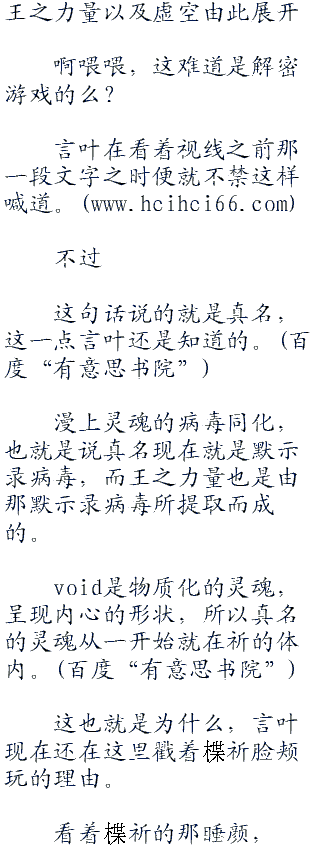 王之力量以及虚空由此展开
啊喂喂，这难道是解密
游戏的么？
言叶在看着视线之前那
一段文字之时便就不禁这样
喊道。(www.hcihci66.com)
不过
这句话说的就是真名，
这一点言叶还是知道的。(百
度“有意思书院”)
漫上灵魂的病毒同化，
也就是说真名现在就是默示
录病毒，而王之力量也是由
那默示录病毒所提取而成
的。
void是物质化的灵魂，
呈现内心的形状，所以真名
的灵魂从一开始就在祈的体
内。(百度“有意思书院”)
这也就是为什么，言叶
现在还在这里戳着楪祈脸颊
玩的理由。
看着楪祈的那睡颜，